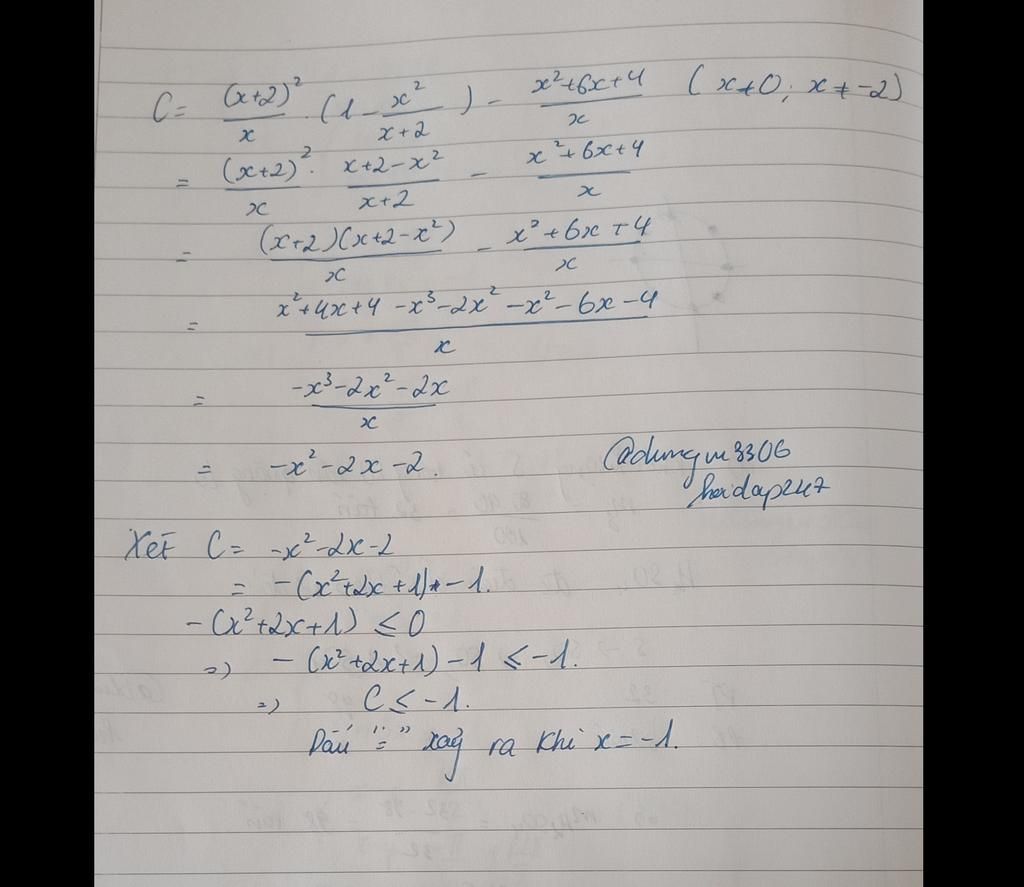 C = (x+2)²/x . (1 - x²/(x+2)) - (x²+6x+4)/x ( x≠0; x≠-2)
= (x+2)²/x . (x+2-x²)/(x+2) - (x²+6x+4)/x
= (x+2)(x+2-x²)/x - (x²+6x+4)/x
= (x²+4x+4-x³-2x²-x²-6x-4)/x
= (-x³-2x²-2x)/x
= -x²-2x-2.
@dungvu3306
hoidap247
Xét C = -x²-2x-2
= -(x²+2x+1) -1.
-(x²+2x+1) ≤ 0
=> -(x²+2x+1)-1 ≤ -1.
=> C ≤ -1.
Dấu "=" xảy ra khi x = -1.